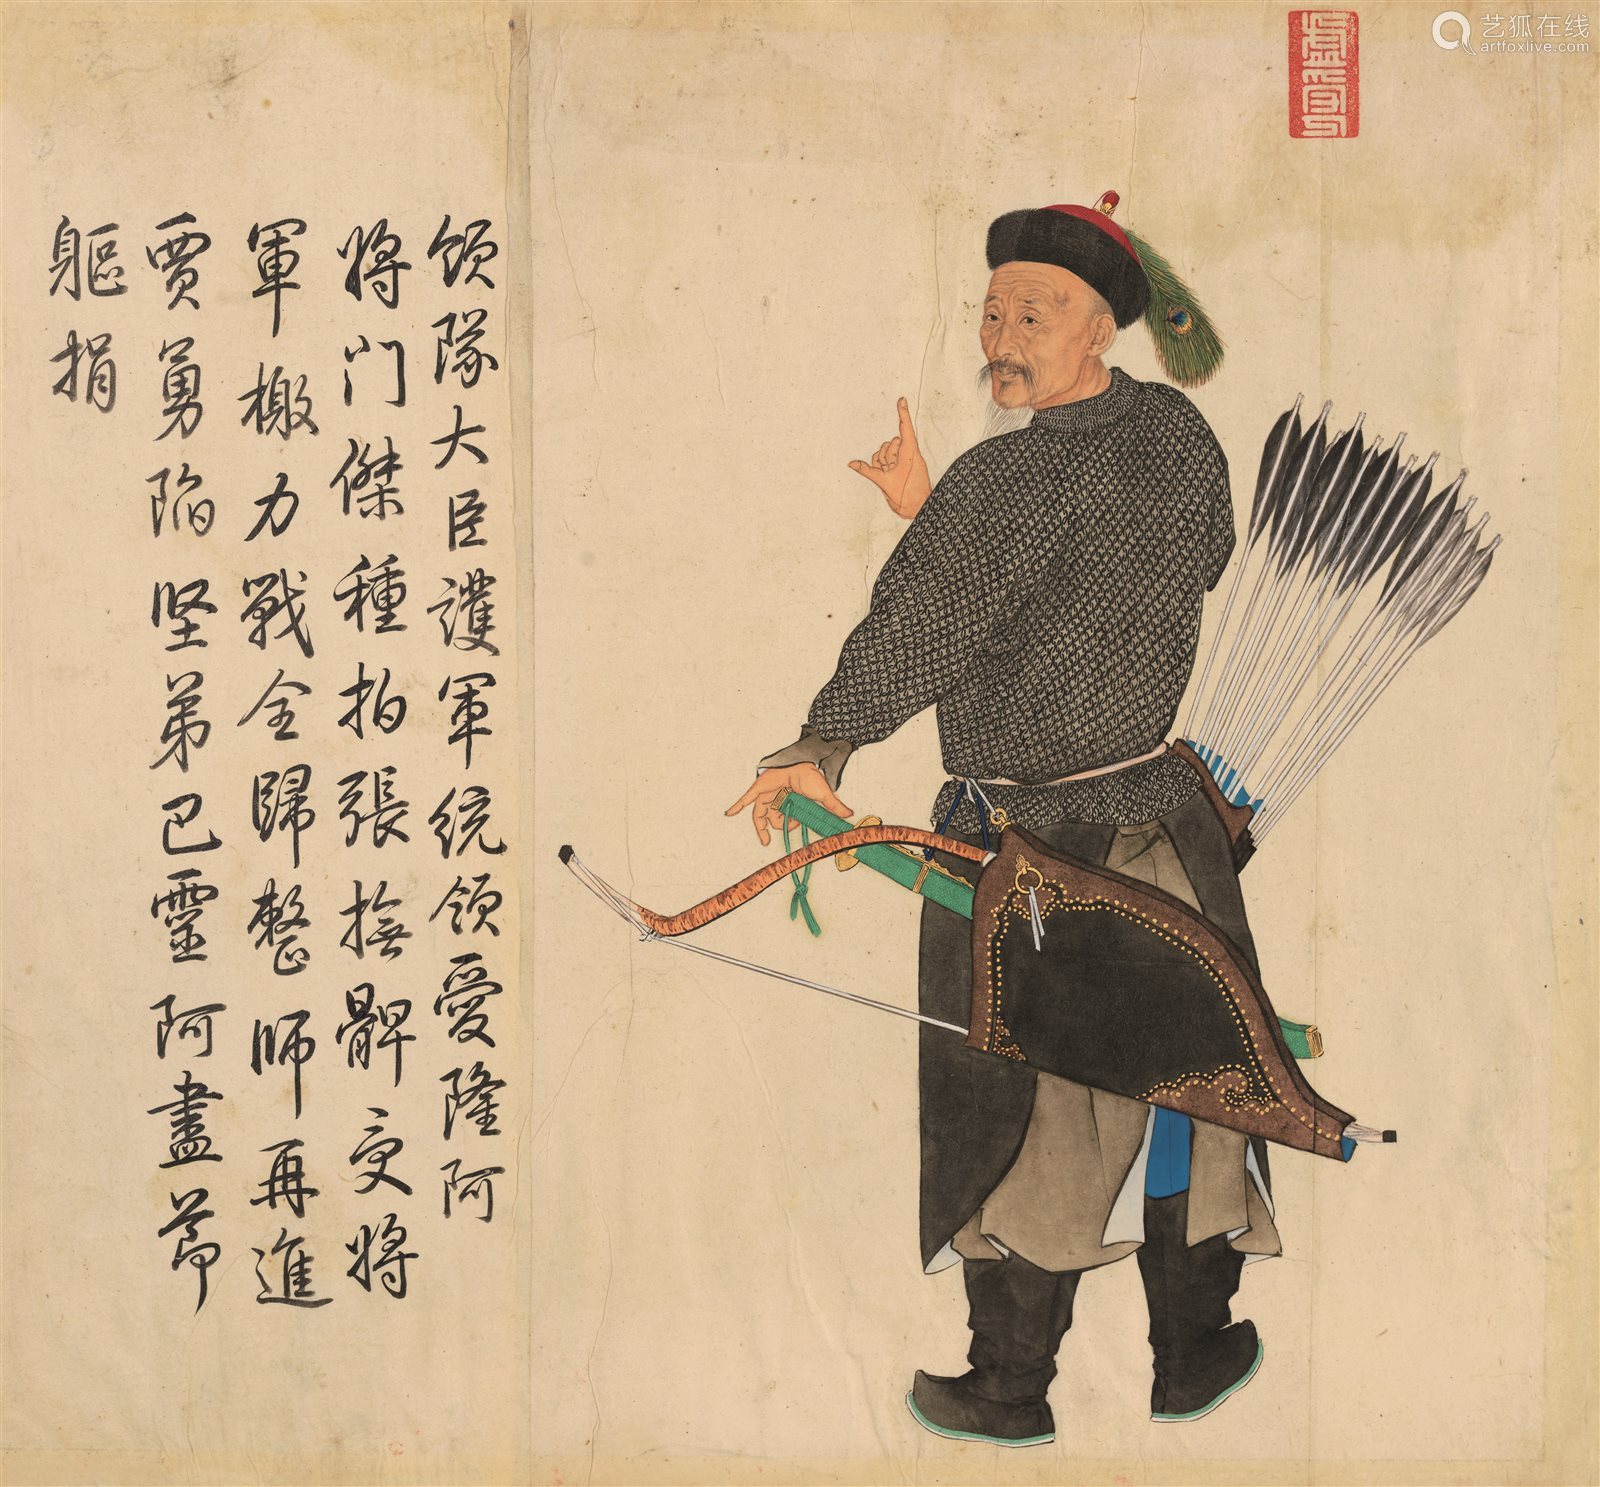 領隊大臣護軍統領愛隆阿
將門傑種拍張撫髀受將
軍檄力戰全歸整師再進
賈勇陷堅弟巴靈阿盡節
軀捐
艺狐在线
artfoxlive.com